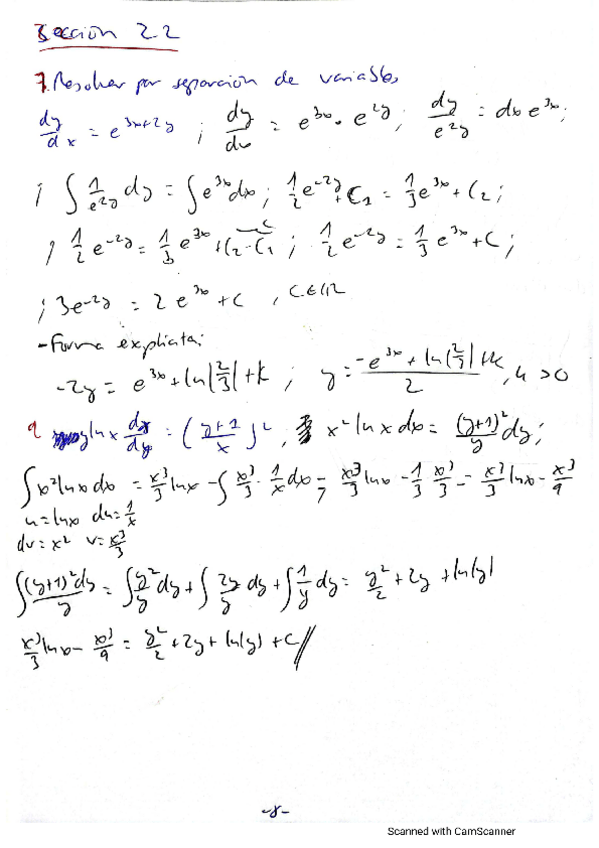 Sección 2.2
7. Resolver por separación de variables
dy/dx = e^(3x+2y) ; dy/dx = e^(3x) · e^(2y) ; dy/e^(2y) = dx e^(3x) ;
; ∫ 1/e^(2y) dy = ∫ e^(3x) dx ; 1/2 e^(-2y) + C₁ = 1/3 e^(3x) + C₂ ;
; 1/2 e^(-2y) = 1/3 e^(3x) + C₂ - C₁ ; 1/2 e^(-2y) = 1/3 e^(3x) + C ;
; 3e^(-2y) = 2 e^(3x) + C , C ∈ ℝ
- Forma explicita:
-2y = e^(3x) + ln|2/3| + k ; y = (-e^(3x) + ln|2/3| + k)/2 , k > 0
9 y ln x dx/dy = ((y+1)/x)² , x² ln x dx = (y+1)²/y dy ;
∫ x² ln x dx = x³/3 ln x - ∫ x³/3 · 1/x dx = x³/3 ln x - 1/3 x³/3 = x³/3 ln x - x³/9
u = ln x du = 1/x
dv = x² v = x³/3
∫ (y+1)² dy/y = ∫ y²/y dy + ∫ 2y/y dy + ∫ 1/y dy = y²/2 + 2y + ln|y|
x³/3 ln x - x³/9 = y²/2 + 2y + ln(y) + C //
-8-
Scanned with CamScanner